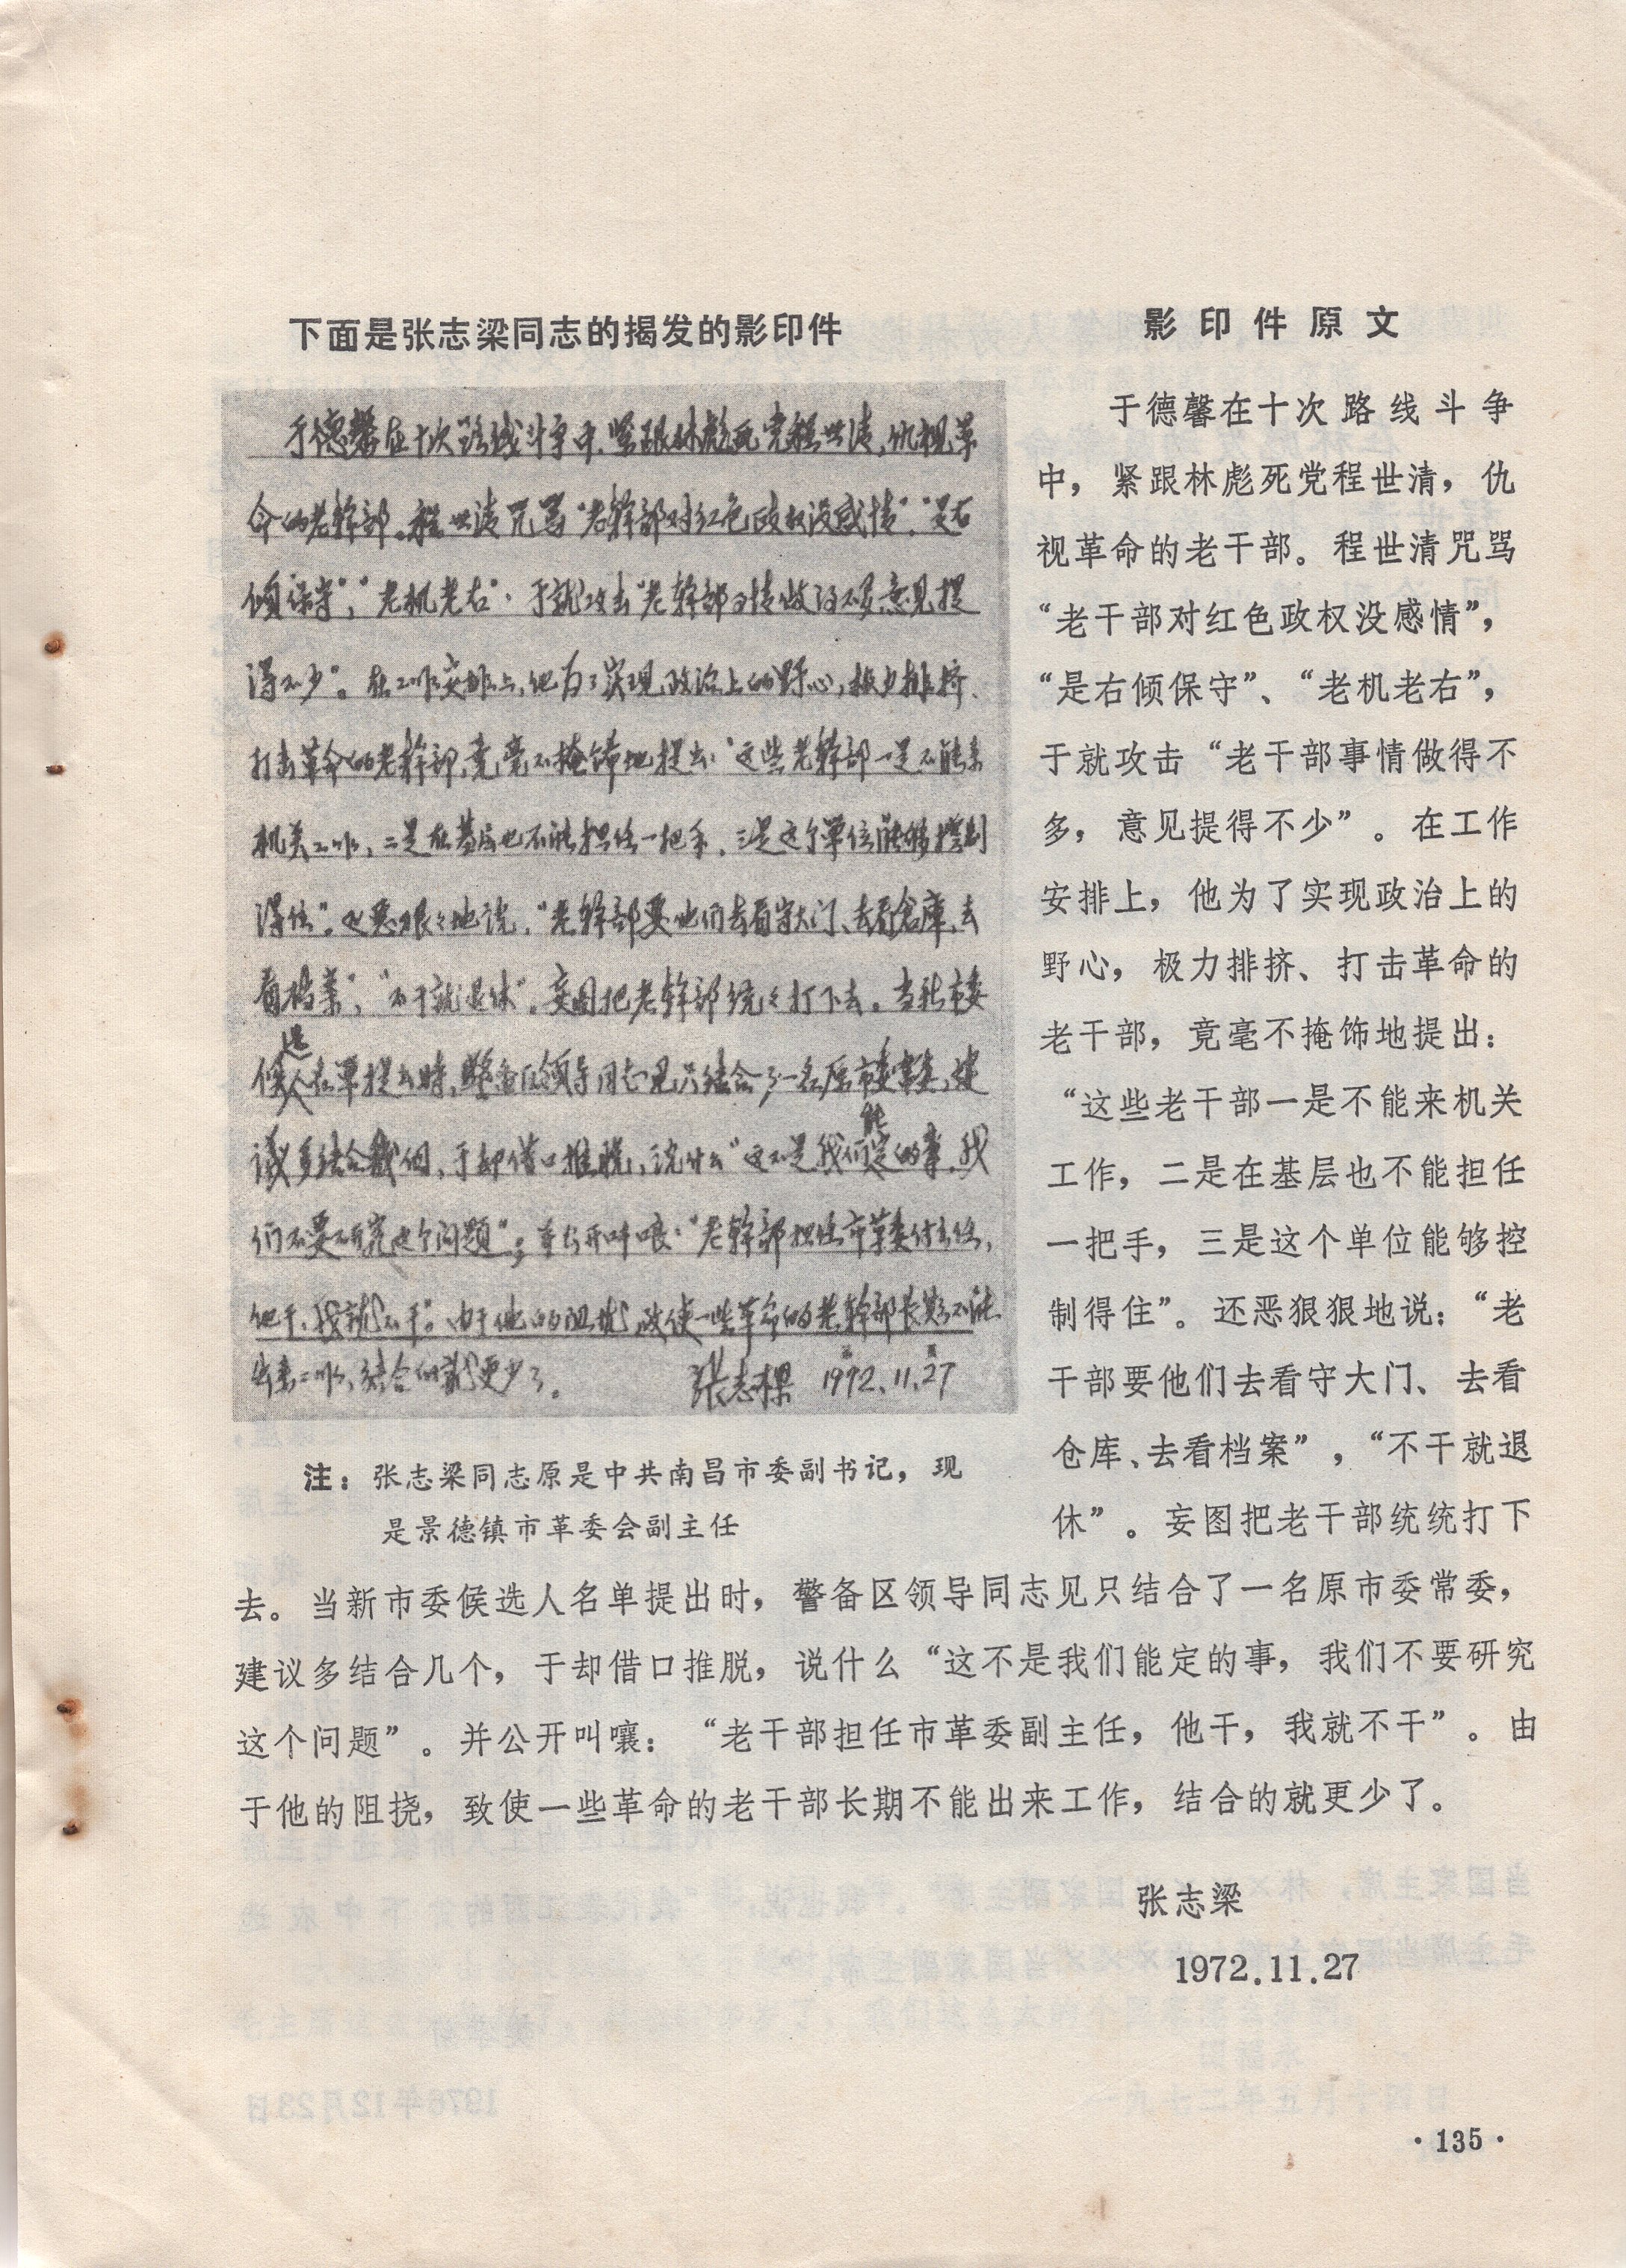 下面是张志梁同志的揭发的影印件
于德馨在十次路线斗争中,紧跟林彪死党程世清,仇视革
命的老幹部。程世清咒骂“老幹部对红色政权没感情”,“是右
倾保守”,“老机老右”.于就攻击“老幹部事情做得不多,意见提
得不少”。在工作安排上,他为了实现政治上的野心,极力排挤、
打击革命的老幹部,竟毫不掩饰地提出:“这些老幹部一是不能来
机关工作,二是在基层也不能担任一把手,三是这个单位能够控制
得住”。还恶狠々地说,“老幹部要他们去看守大门、去看倉庫、去
看档案”,“不干就退休”。妄图把老幹部统々打下去。当新市委
候选人名单提出时,警备区领导同志见只结合了一名原市委常委,建
议多结合几個,于却借口推脱,说什么“这不是我们能定的事,我
们不要研究这个问题”;并公开叫嚷:“老幹部担任市革委付主任,
他干,我就不干”。由于他的阻挠,致使一些革命的老幹部长期不能
出来工作,结合的就更少了。 张志樑 1972.11.27
注:张志梁同志原是中共南昌市委副书记,现
是景德镇市革委会副主任
影印件原文
于德馨在十次路线斗争
中,紧跟林彪死党程世清,仇
视革命的老干部。程世清咒骂
“老干部对红色政权没感情”,
“是右倾保守”、“老机老右”,
于就攻击“老干部事情做得不
多,意见提得不少”。在工作
安排上,他为了实现政治上的
野心,极力排挤、打击革命的
老干部,竟毫不掩饰地提出:
“这些老干部一是不能来机关
工作,二是在基层也不能担任
一把手,三是这个单位能够控
制得住”。还恶狠狠地说:“老
干部要他们去看守大门、去看
仓库、去看档案”,“不干就退
休”。妄图把老干部统统打下
去。当新市委侯选人名单提出时,警备区领导同志见只结合了一名原市委常委,
建议多结合几个,于却借口推脱,说什么“这不是我们能定的事,我们不要研究
这个问题”。并公开叫嚷:“老干部担任市革委副主任,他干,我就不干”。由
于他的阻挠,致使一些革命的老干部长期不能出来工作,结合的就更少了。
张志梁
1972.11.27
·135·